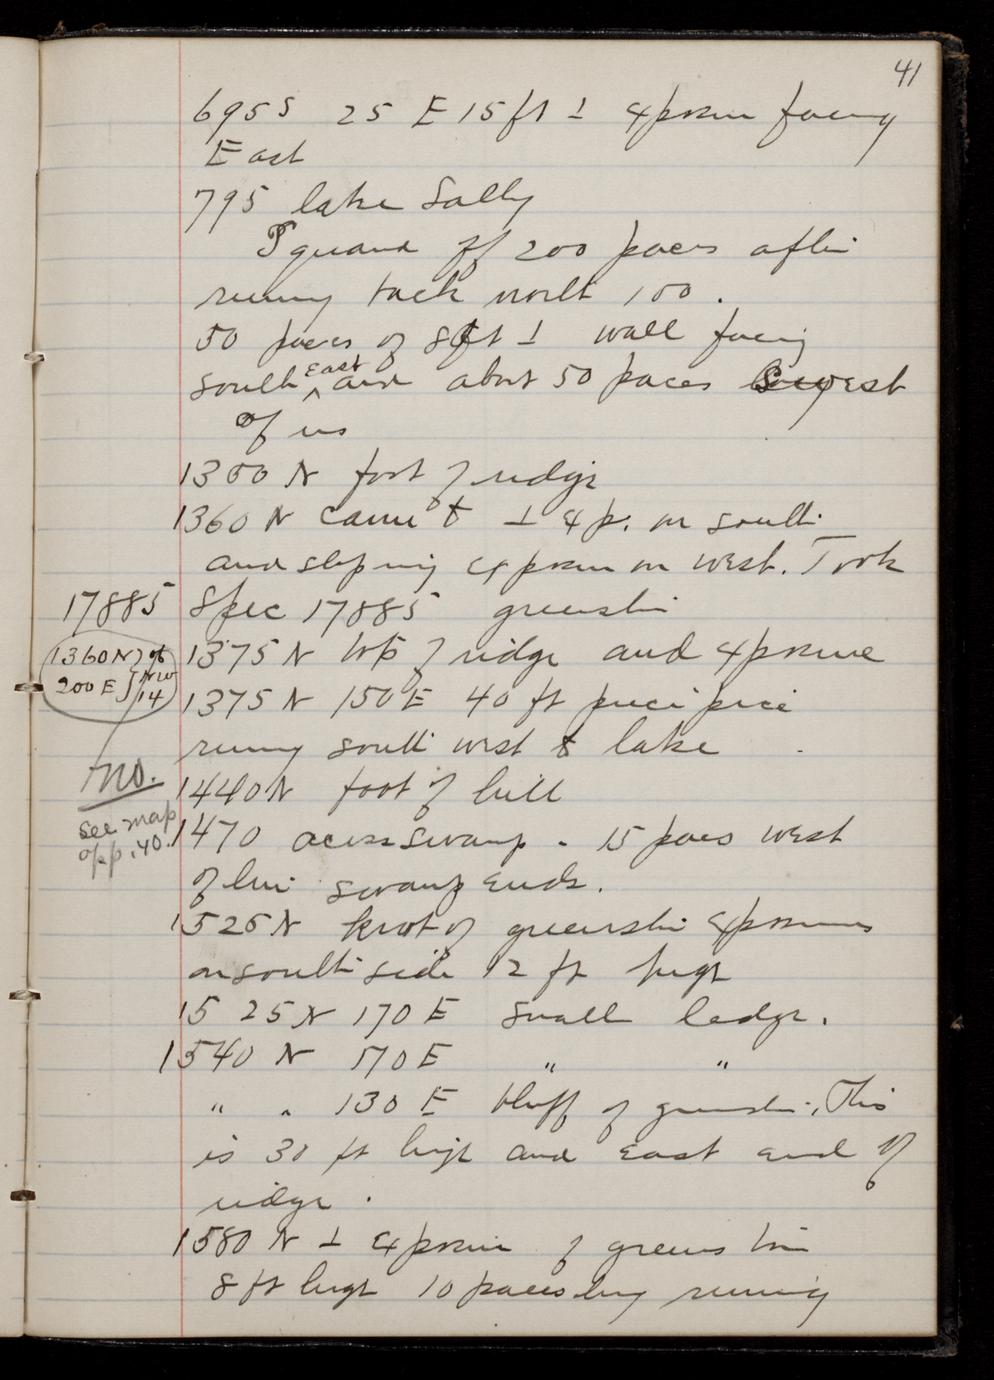 41
695 S 25 E 15 ft ⊥ exposure facing
East
795 lake Sally
Squared off 200 paces after
running back north 100.
50 paces of 8 ft ⊥ wall facing
south East and about 50 paces west
of us
1300 N foot of ridge
1360 N came to ⊥ exp. on south
and sloping exposure on west. Took
17885
Spec 17885 greenstn
1360 N } of
200 E } NW 14
1375 N top of ridge and exposure
1375 N 150 E 40 ft precipice
running south west to lake
no.
1440 N foot of hill
see map
opp. 40.
1470 across swamp. 15 paces west
of line swamp ends.
1525 N knot of greenstn exposures
on south side 12 ft high
1525 N 170 E small ledge.
1540 N 170 E " "
" " 130 E bluff of greenstn. This
is 30 ft high and east end of
ridge.
1580 N ⊥ exposure of greenstone
8 ft high 10 paces long running